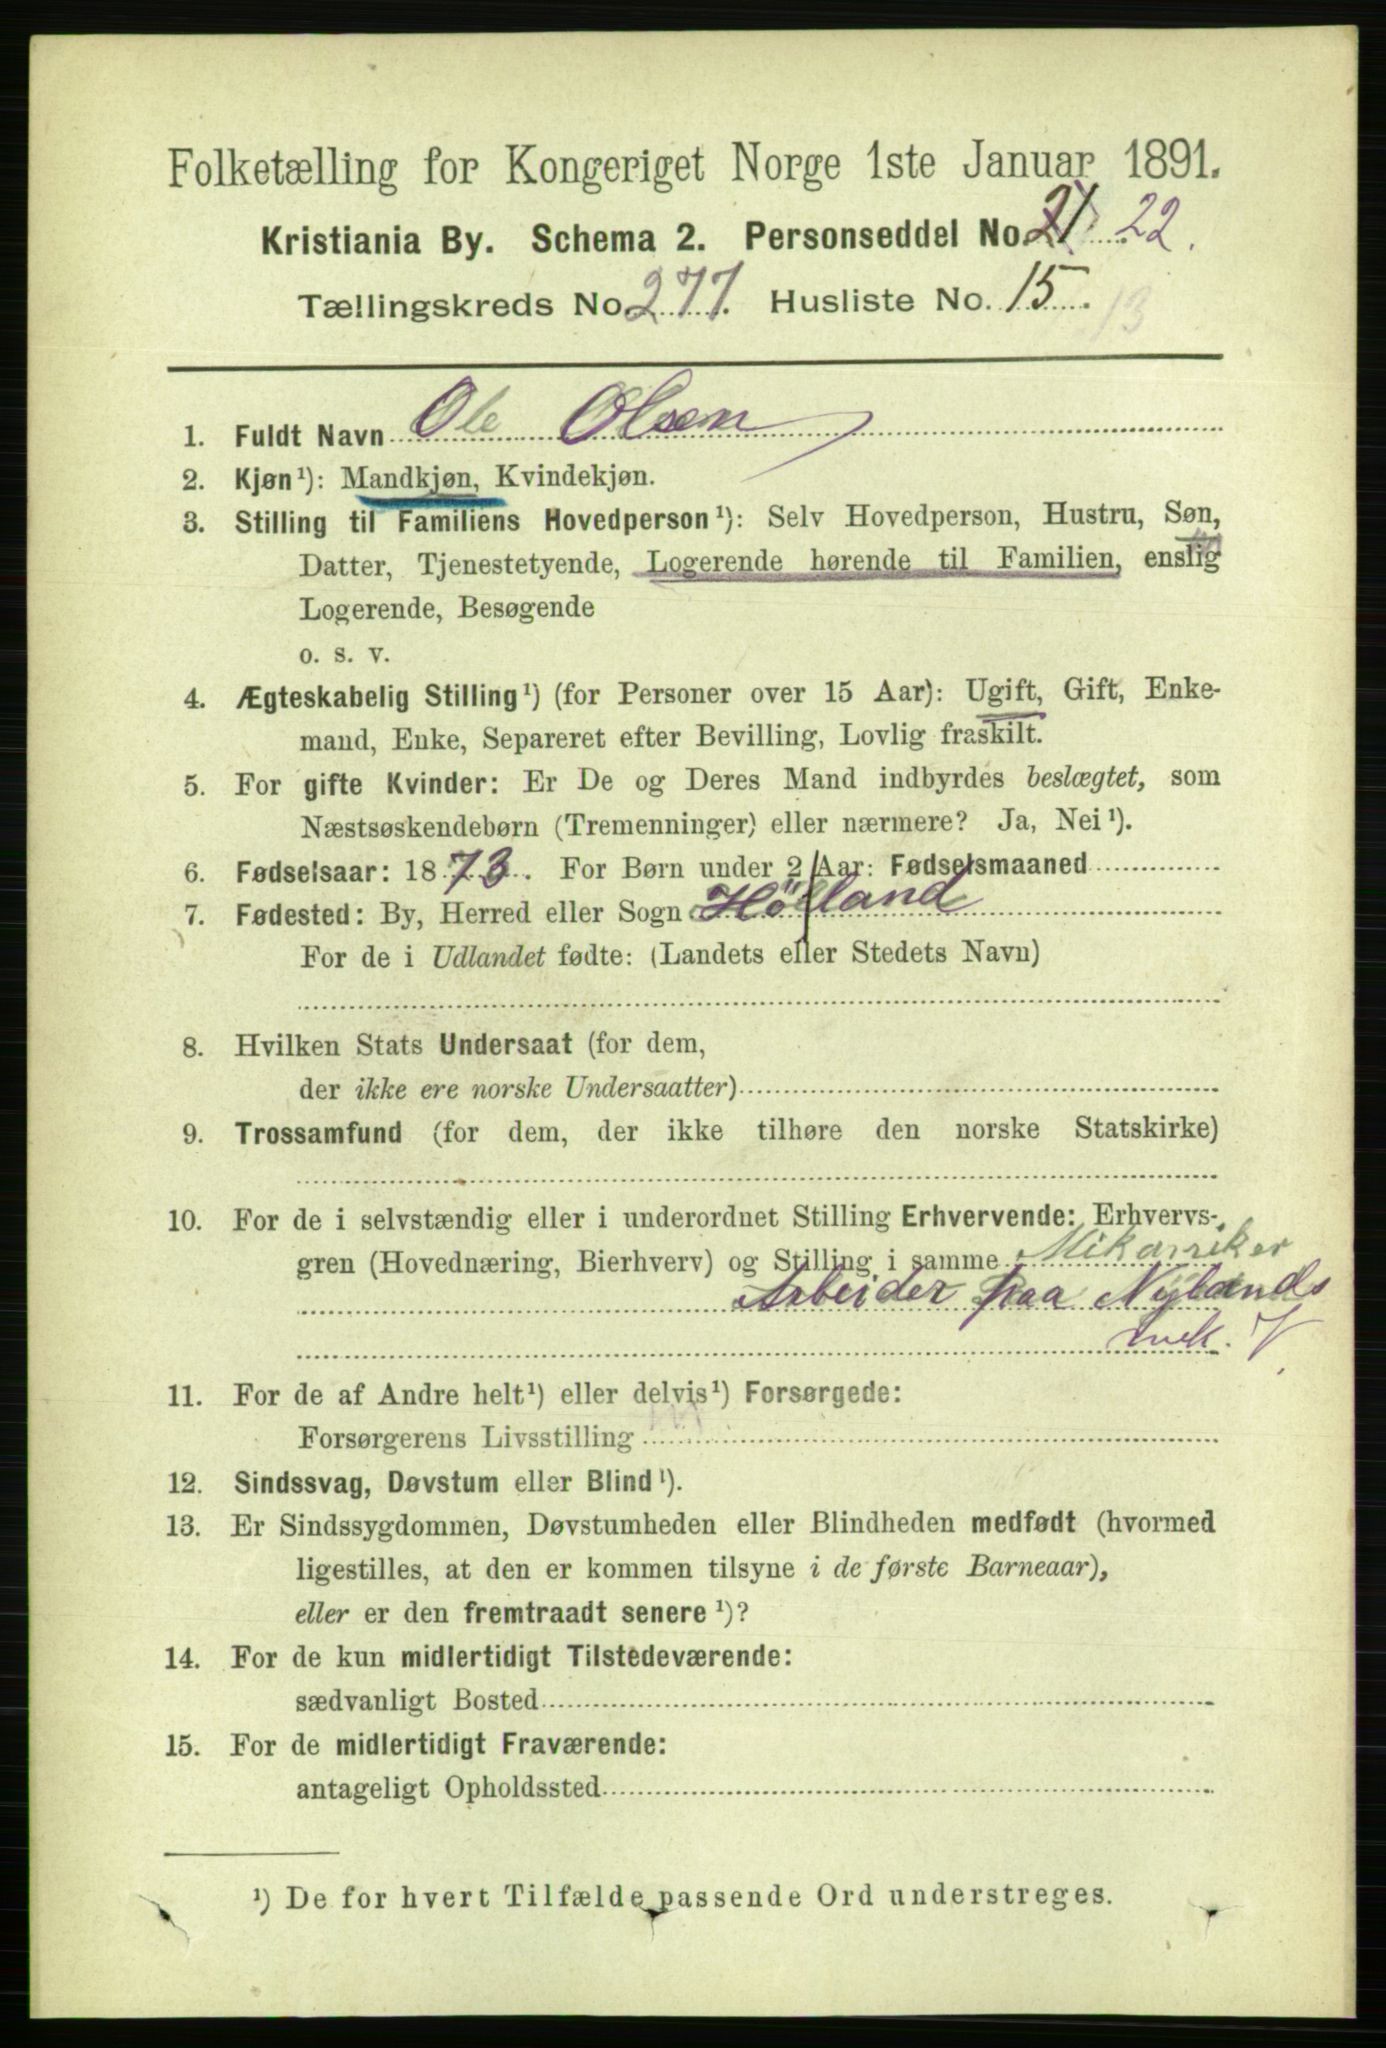 Folketælling for Kongeriget Norge 1ste Januar 1891.
Kristiania By. Schema 2. Personseddel No. 21 22.
Tællingskreds No. 277. Husliste No. 15. 13
1. Fuldt Navn Ole Olsen
2. Kjøn¹): Mandkjøn, Kvindekjøn.
3. Stilling til Familiens Hovedperson¹): Selv Hovedperson, Hustru, Søn,
Datter, Tjenestetyende, Logerende hørende til Familien, enslig
Logerende, Besøgende
o. s. v.
4. Ægteskabelig Stilling¹) (for Personer over 15 Aar): Ugift, Gift, Enke-
mand, Enke, Separeret efter Bevilling, Lovlig fraskilt.
5. For gifte Kvinder: Er De og Deres Mand indbyrdes beslægtet, som
Næstsøskendebørn (Tremenninger) eller nærmere? Ja, Nei¹).
6. Fødselsaar: 1873. For Børn under 2 Aar: Fødselsmaaned
7. Fødested: By, Herred eller Sogn Höland
For de i Udlandet fødte: (Landets eller Stedets Navn)
8. Hvilken Stats Undersaat (for dem,
der ikke ere norske Undersaatter)
9. Trossamfund (for dem, der ikke tilhøre den norske Statskirke)
10. For de i selvstændig eller i underordnet Stilling Erhvervende: Erhvervs-
gren (Hovednæring, Bierhverv) og Stilling i samme
Arbeider paa Nylands
mek. V
11. For de af Andre helt¹) eller delvis¹) Forsørgede:
Forsørgerens Livsstilling
12. Sindssvag, Døvstum eller Blind¹).
13. Er Sindssygdommen, Døvstumheden eller Blindheden medfødt (hvormed
ligestilles, at den er kommen tilsyne i de første Barneaar),
eller er den fremtraadt senere¹)?
14. For de kun midlertidigt Tilstedeværende:
sædvanligt Bosted
15. For de midlertidigt Fraværende:
antageligt Opholdssted
¹) De for hvert Tilfælde passende Ord understreges.